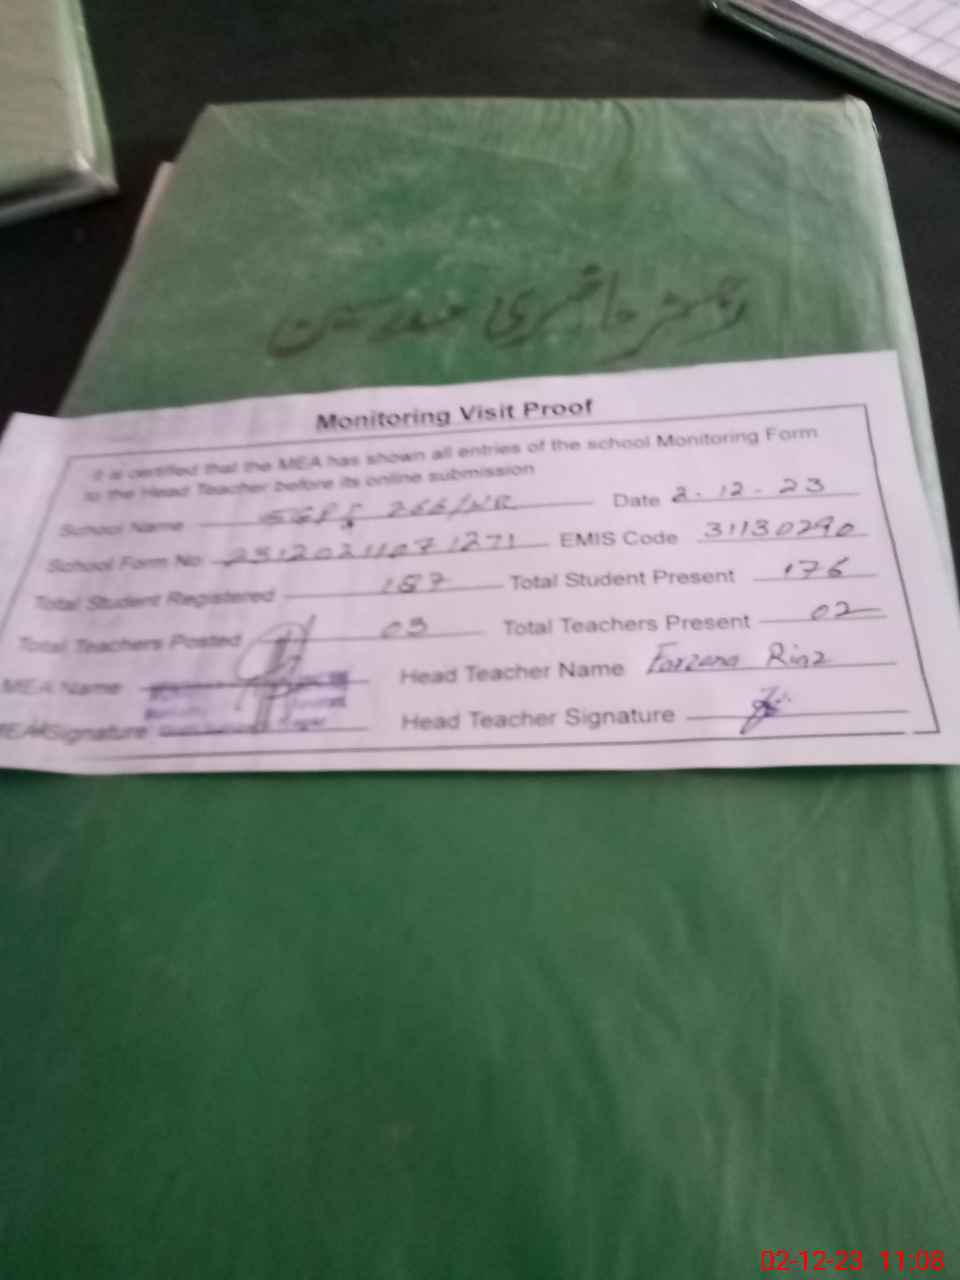 رجسٹر حاضری مدرسین
Monitoring Visit Proof
It is certified that the MEA has shown all entries of the school Monitoring Form
to the Head Teacher before its online submission
School Name 266/HR Date 2-12-23
School Form No EMIS Code 31130290
Total Student Registered 187 Total Student Present 176
Total Teachers Posted 03 Total Teachers Present 02
MEA Name Head Teacher Name Farzana Riaz
MEA Signature Head Teacher Signature
02-12-23 11:08